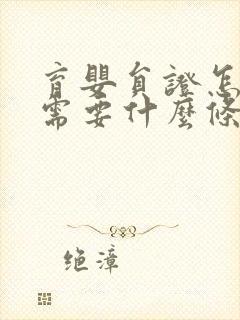 育嬰員證怎
需要什麼條
绝漳